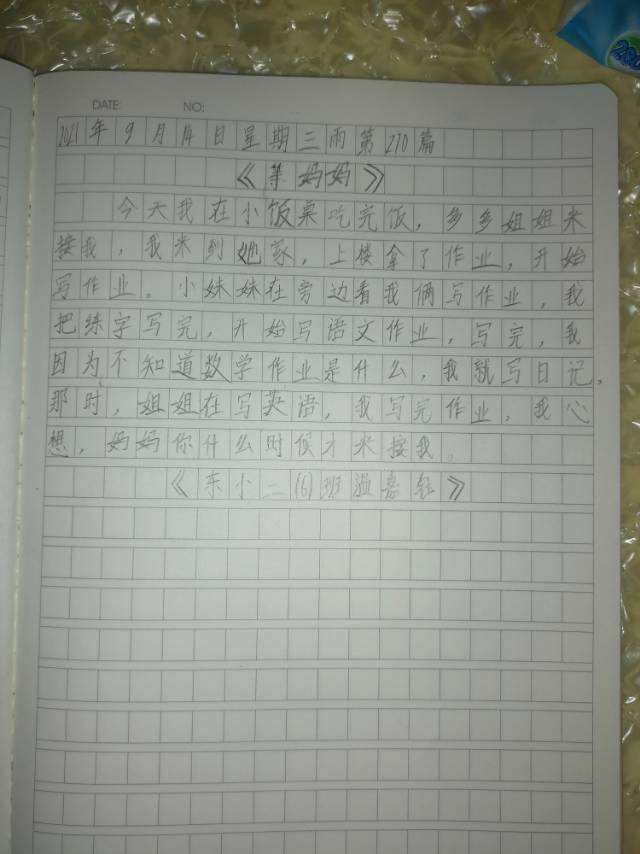 DATE: NO:
2021年9月14日星期三雨第270篇
《等妈妈》
今天我在小饭桌吃完饭，多多姐姐来
接我，我来到她家，上楼拿了作业，开始
写作业。小妹妹在旁边看我俩写作业，我
把练字写完，开始写语文作业，写完，我
因为不知道数学作业是什么，我就写日记，
那时，姐姐在写英语，我写完作业，我心
想，妈妈你什么时候才来接我。
《东小二(6)班温嘉